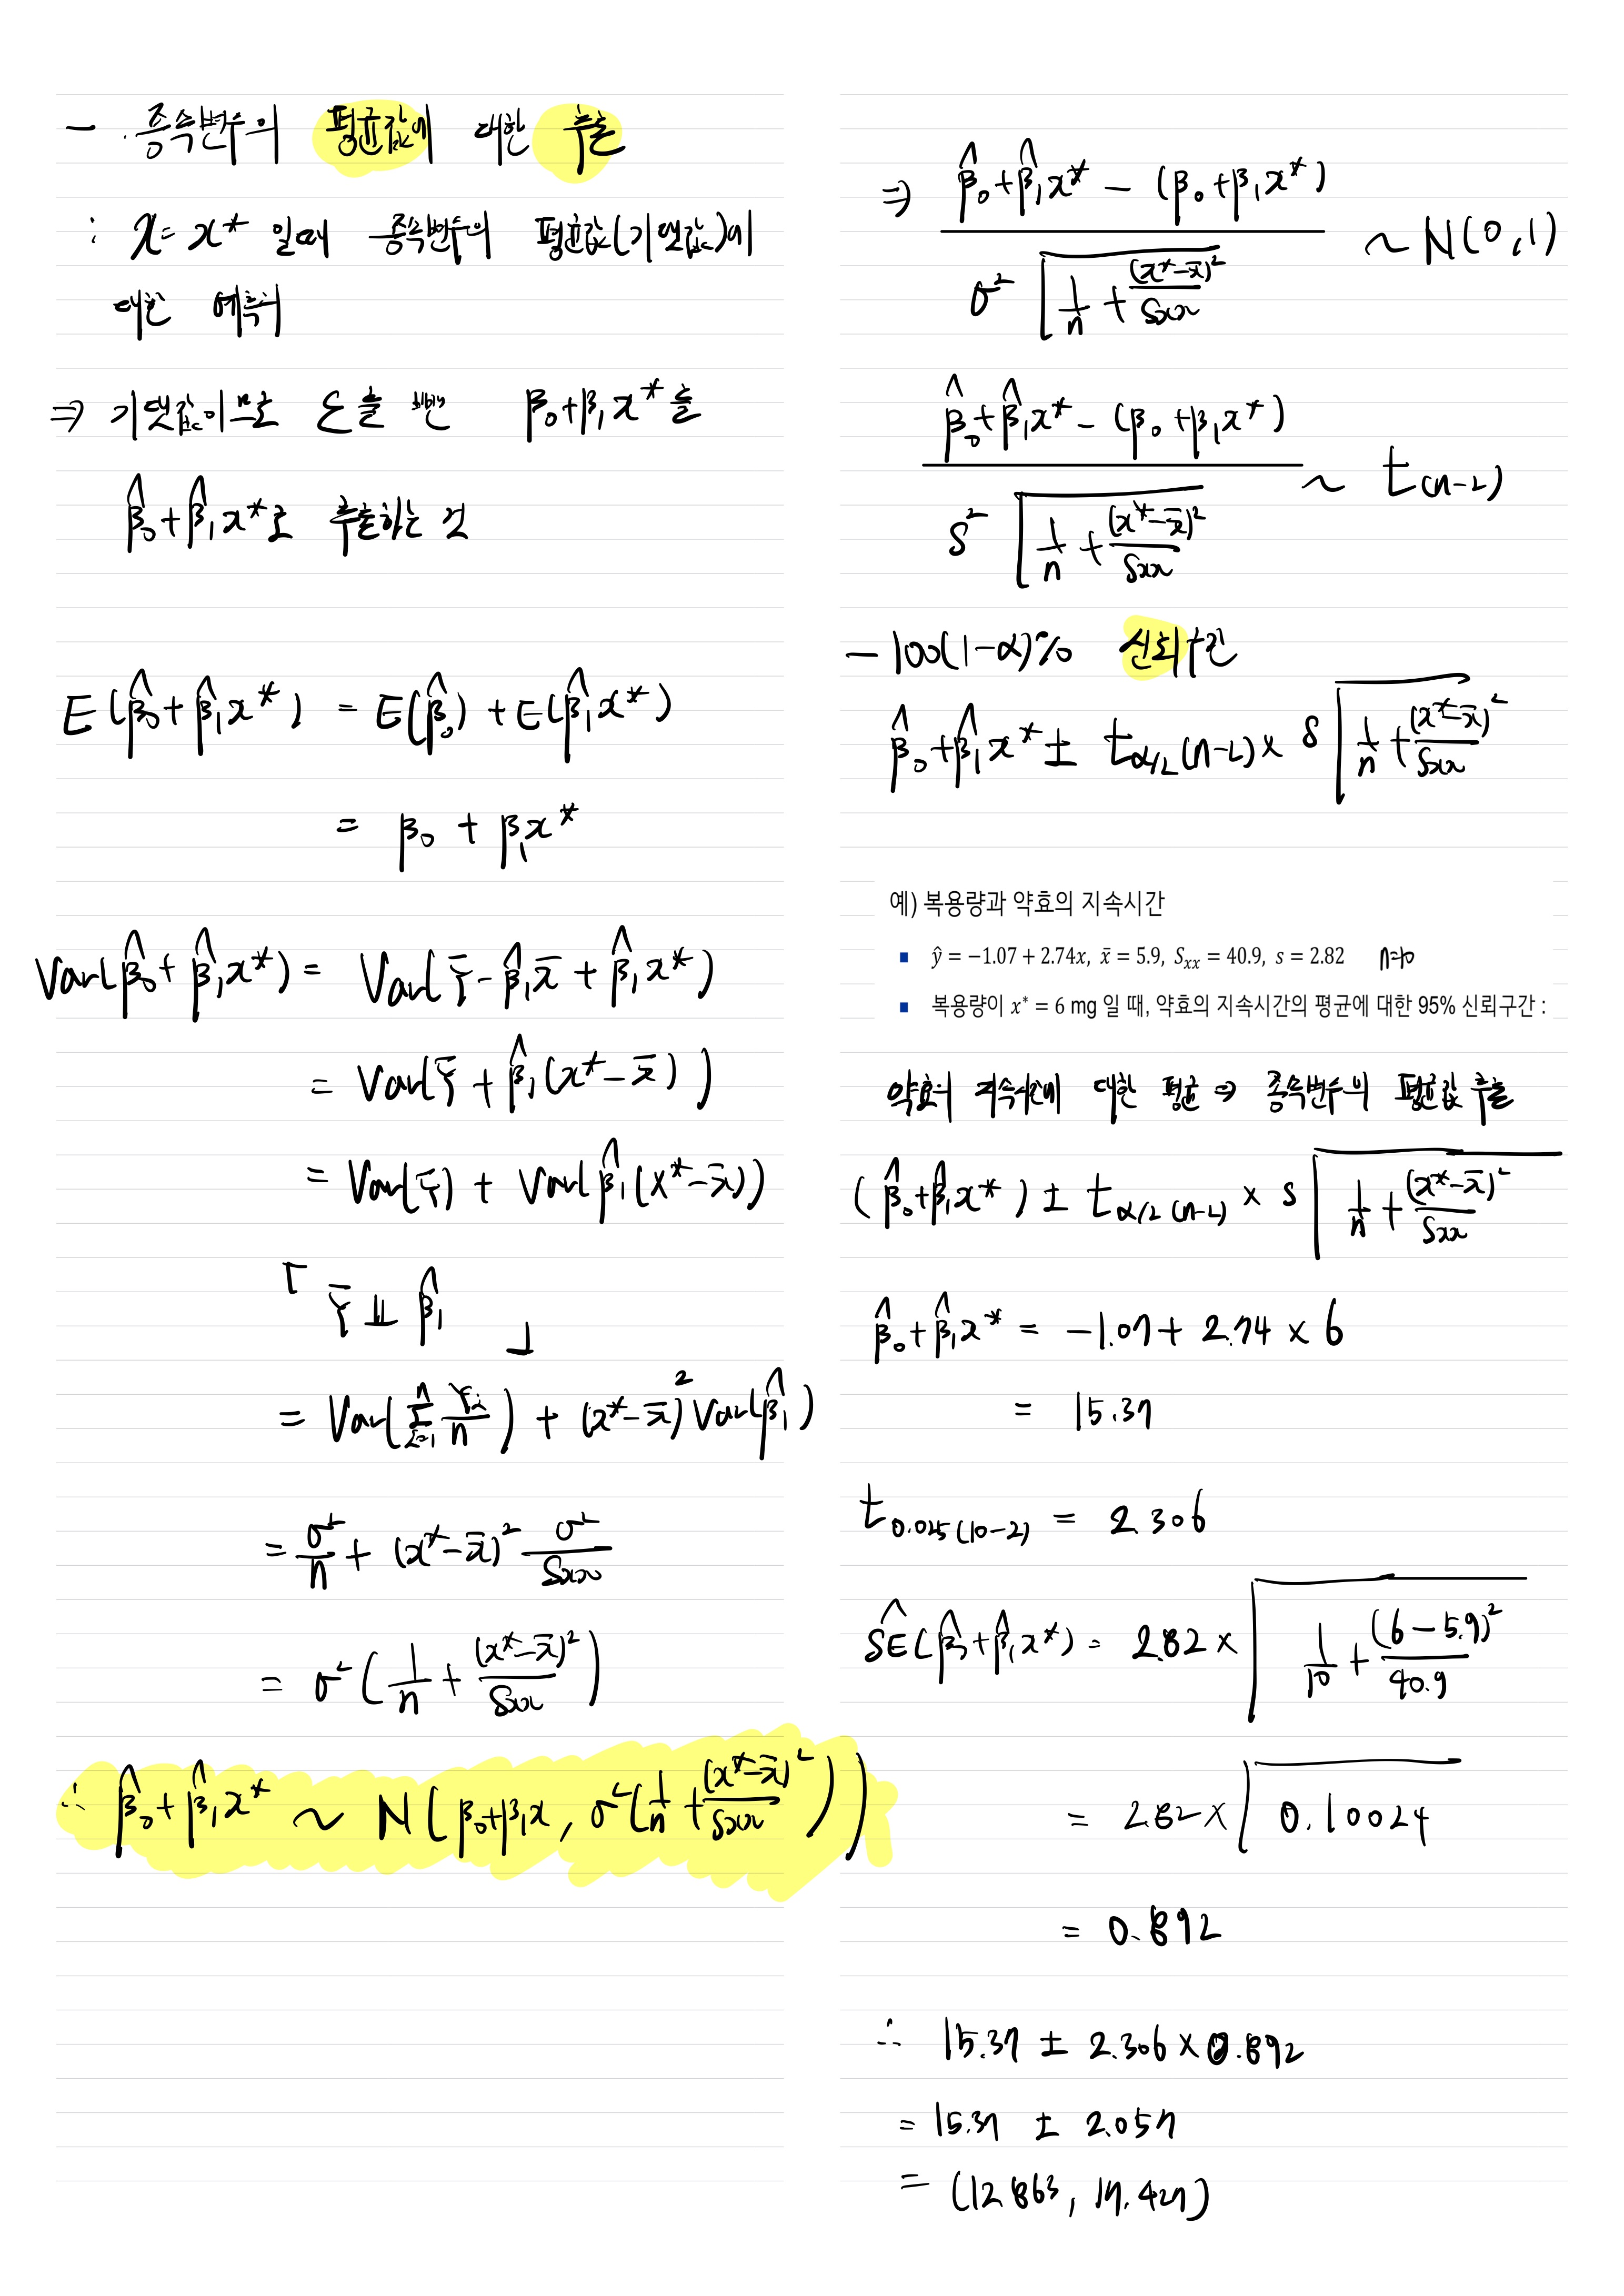 - 종속변수의 평균값에 대한 추론
: X = x* 일때 종속변수의 평균값(기댓값)에
대한 예측
⇒ 기댓값이므로 ε을 뺀 β₀+β₁x*을
β̂₀+β̂₁x*로 추론하는 것
E(β̂₀+β̂₁x*) = E(β̂₀) + E(β̂₁x*)
= β₀ + β₁x*
Var(β̂₀+β̂₁x*) = Var(Ȳ-β̂₁x̄+β̂₁x*)
= Var(Ȳ+β̂₁(x*-x̄))
= Var(Ȳ) + Var(β̂₁(x*-x̄))
「 Ȳ ⫫ β̂₁ 」
= Var(Σⁿᵢ₌₁ Yᵢ/n) + (x*-x̄)² Var(β̂₁)
= σ²/n + (x*-x̄)² σ²/Sxx
= σ²(1/n + (x*-x̄)²/Sxx)
∴ β̂₀+β̂₁x* ~ N(β₀+β₁x, σ²(1/n + (x*-x̄)²/Sxx))
⇒ β̂₀+β̂₁x* - (β₀+β₁x*) / σ²√(1/n + (x*-x̄)²/Sxx) ~ N(0,1)
β̂₀+β̂₁x* - (β₀+β₁x*) / s²√(1/n + (x*-x̄)²/Sxx) ~ t(n-2)
- 100(1-α)% 신뢰구간
β̂₀+β̂₁x* ± tα/2(n-2) × s√(1/n + (x*-x̄)²/Sxx)
예) 복용량과 약효의 지속시간
■ ŷ = −1.07 + 2.74x, x̄ = 5.9, Sxx = 40.9, s = 2.82 n=10
■ 복용량이 x* = 6 mg 일 때, 약효의 지속시간의 평균에 대한 95% 신뢰구간 :
약효의 지속시간에 대한 평균 ⇒ 종속변수의 평균값 추론
(β̂₀+β̂₁x*) ± tα/2(n-2) × s√(1/n + (x*-x̄)²/Sxx)
β̂₀+β̂₁x* = -1.07 + 2.74 × 6
= 15.37
t0.025(10-2) = 2.306
ŜE(β̂₀+β̂₁x*) = 2.82 × √(1/10 + (6-5.9)²/40.9)
= 2.82 × √0.10024
= 0.892
∴ 15.37 ± 2.306 × 0.892
= 15.37 ± 2.057
= (12.863, 17.427)